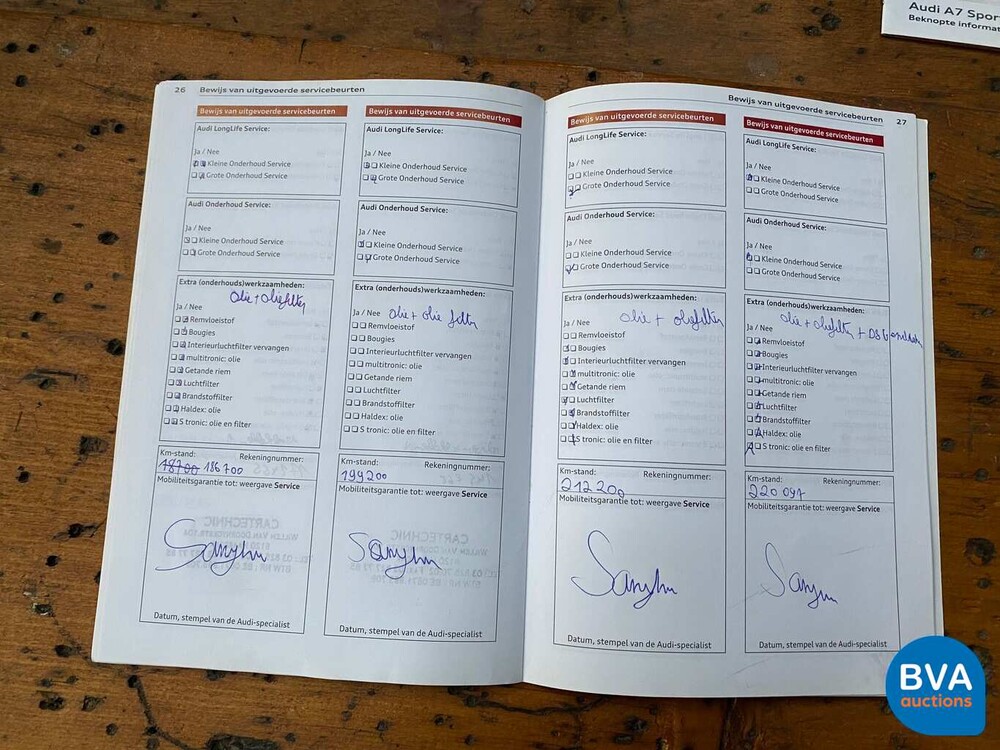 Audi A7 Spor
Beknopte informat
26 Bewijs van uitgevoerde servicebeurten
Bewijs van uitgevoerde servicebeurten
Audi LongLife Service:
Ja / Nee
Kleine Onderhoud Service
Grote Onderhoud Service
Audi Onderhoud Service:
Ja / Nee
Kleine Onderhoud Service
Grote Onderhoud Service
Extra (onderhouds)werkzaamheden:
olie + oliefilter
Ja / Nee
Remvloeistof
Bougies
Interieurluchtfilter vervangen
multitronic: olie
Getande riem
Luchtfilter
Brandstoffilter
Haldex: olie
S tronic: olie en filter
Km-stand: Rekeningnummer:
18700 186700
Mobiliteitsgarantie tot: weergave Service
Datum, stempel van de Audi-specialist
Bewijs van uitgevoerde servicebeurten
Audi LongLife Service:
Ja / Nee
Kleine Onderhoud Service
Grote Onderhoud Service
Audi Onderhoud Service:
Ja / Nee
Kleine Onderhoud Service
Grote Onderhoud Service
Extra (onderhouds)werkzaamheden:
Ja / Nee olie + olie filter
Remvloeistof
Bougies
Interieurluchtfilter vervangen
multitronic: olie
Getande riem
Luchtfilter
Brandstoffilter
Haldex: olie
S tronic: olie en filter
Km-stand: Rekeningnummer:
199200
Mobiliteitsgarantie tot: weergave Service
Datum, stempel van de Audi-specialist
Bewijs van uitgevoerde servicebeurten 27
Bewijs van uitgevoerde servicebeurten
Audi LongLife Service:
Ja / Nee
Kleine Onderhoud Service
Grote Onderhoud Service
Audi Onderhoud Service:
Ja / Nee
Kleine Onderhoud Service
Grote Onderhoud Service
Extra (onderhouds)werkzaamheden:
Ja / Nee olie + oliefilter
Remvloeistof
Bougies
Interieurluchtfilter vervangen
multitronic: olie
Getande riem
Luchtfilter
Brandstoffilter
Haldex: olie
S tronic: olie en filter
Km-stand: Rekeningnummer:
212 200
Mobiliteitsgarantie tot: weergave Service
Datum, stempel van de Audi-specialist
Bewijs van uitgevoerde servicebeurten
Audi LongLife Service:
Ja / Nee
Kleine Onderhoud Service
Grote Onderhoud Service
Audi Onderhoud Service:
Ja / Nee
Kleine Onderhoud Service
Grote Onderhoud Service
Extra (onderhouds)werkzaamheden:
Ja / Nee olie + oliefilter +
Remvloeistof
Bougies
Interieurluchtfilter vervangen
multitronic: olie
Getande riem
Luchtfilter
Brandstoffilter
Haldex: olie
S tronic: olie en filter
Km-stand: Rekeningnummer:
220 097
Mobiliteitsgarantie tot: weergave Service
Datum, stempel van de Audi-specialist
BVA
auctions